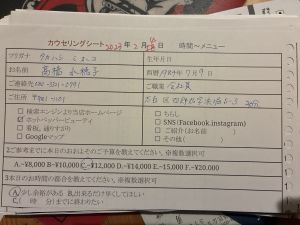 カウンセリングシート 2023年 2月 日 時間〜メニュー
フリガナ タカハシ 生年月日
お名前 高橋 西暦1989年9月9日
ご連絡先 ご職業 会社員
ご住所 〒
□ 検索エンジンより当店ホームページ □ ちらし
☑ ホットペッパービューティ □ SNS(Facebook.instagram)
□ 看板、通りすがり □ ご紹介(お名前 )
□ Googleマップ □ その他(
2ご参考までに本日のおおよそのご予算を教えてください。※複数選択可
A.~¥8,000 B~¥10,000 C.~¥12,000 D.~¥14,000 E.~15,000 F.~¥20,000
3本日のお時間の都合を教えてください。※複数選択可
A.少し余裕がある B.出来るだけ早くしてほしい
C.( 時 分)までに終わりたい